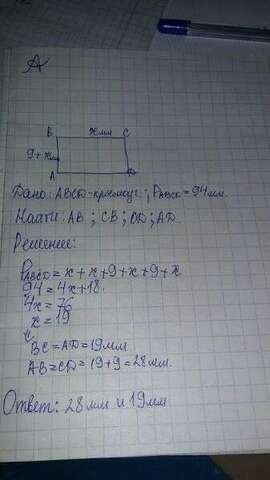 A
B x мм C
9+x мм
A D
Дано: ABCD-прямоуг.; PABCD = 94мм.
Найти: AB; CB; CD; AD.
Решение:
PABCD = x + x + 9 + x + 9 + x
94 = 4x + 18.
4x = 76
x = 19
BC = AD = 19мм
AB = CD = 19 + 9 = 28мм.
Ответ: 28мм и 19мм